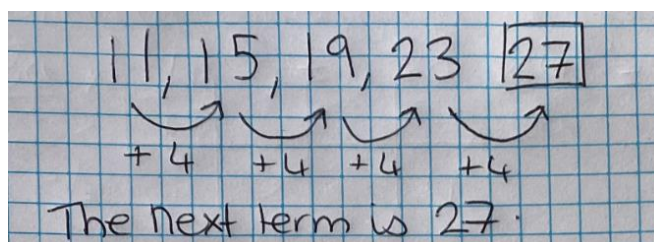 11, 15, 19, 23 27
+4 +4 +4 +4
The next term is 27.